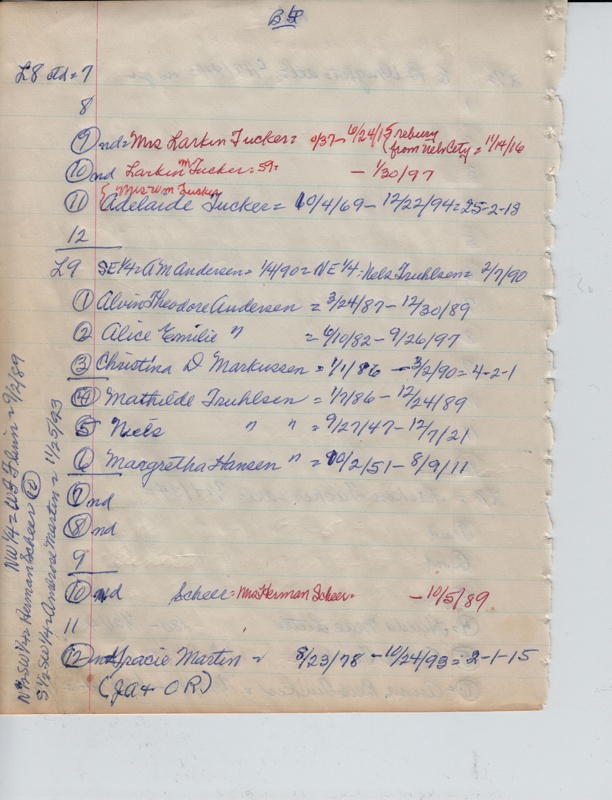 L8
8
⑨ nd = Mrs Larkin Tucker = 6/24/15 { rebury from = 11/14/16
⑩ nd Larkin m Tucker = Sr = — 1/30/97
{ Mrs Wm Tucker
⑪ Adelaide Tucker = 10/4/69 — 12/22/94 = 25-2-18
12
L9 SE 1/4 = A M Andersen = 1/4/90 = NE 1/4 : Nels Truhlsen = 2/7/90
① Alvin Theodore Andersen = 3/24/87 - 12/30/89
② Alice Emilie " = 6/10/82 - 9/26/97
③ Christina D Markussen = 1/1/86 - 3/2/90 = 4-2-1
④ Mathilde Truhlsen = 1/7/86 - 12/24/89
5 Niels " " = 9/27/47 - 12/7/21
⑥ Margretha Hansen " = 10/2/51 - 8/9/11
⑦ nd
⑧ nd
9
⑩ nd Scheer = Mrs Herman Scheer = - 10/5/89
11
⑫ nd Gracie Martin = 8/23/78 - 10/24/93 = 2-1-15
(JA & OR)
NW 1/4 = 9/2/89
N 1/2 SW 1/4 = Herman Scheer ⑩
S 1/2 SW 1/4 = Ambrose Martin = 11/25/93